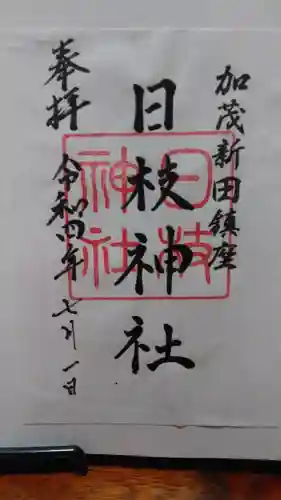 加茂新田鎮座
日枝神社
奉拝
令和四年七月一日
日枝
神社